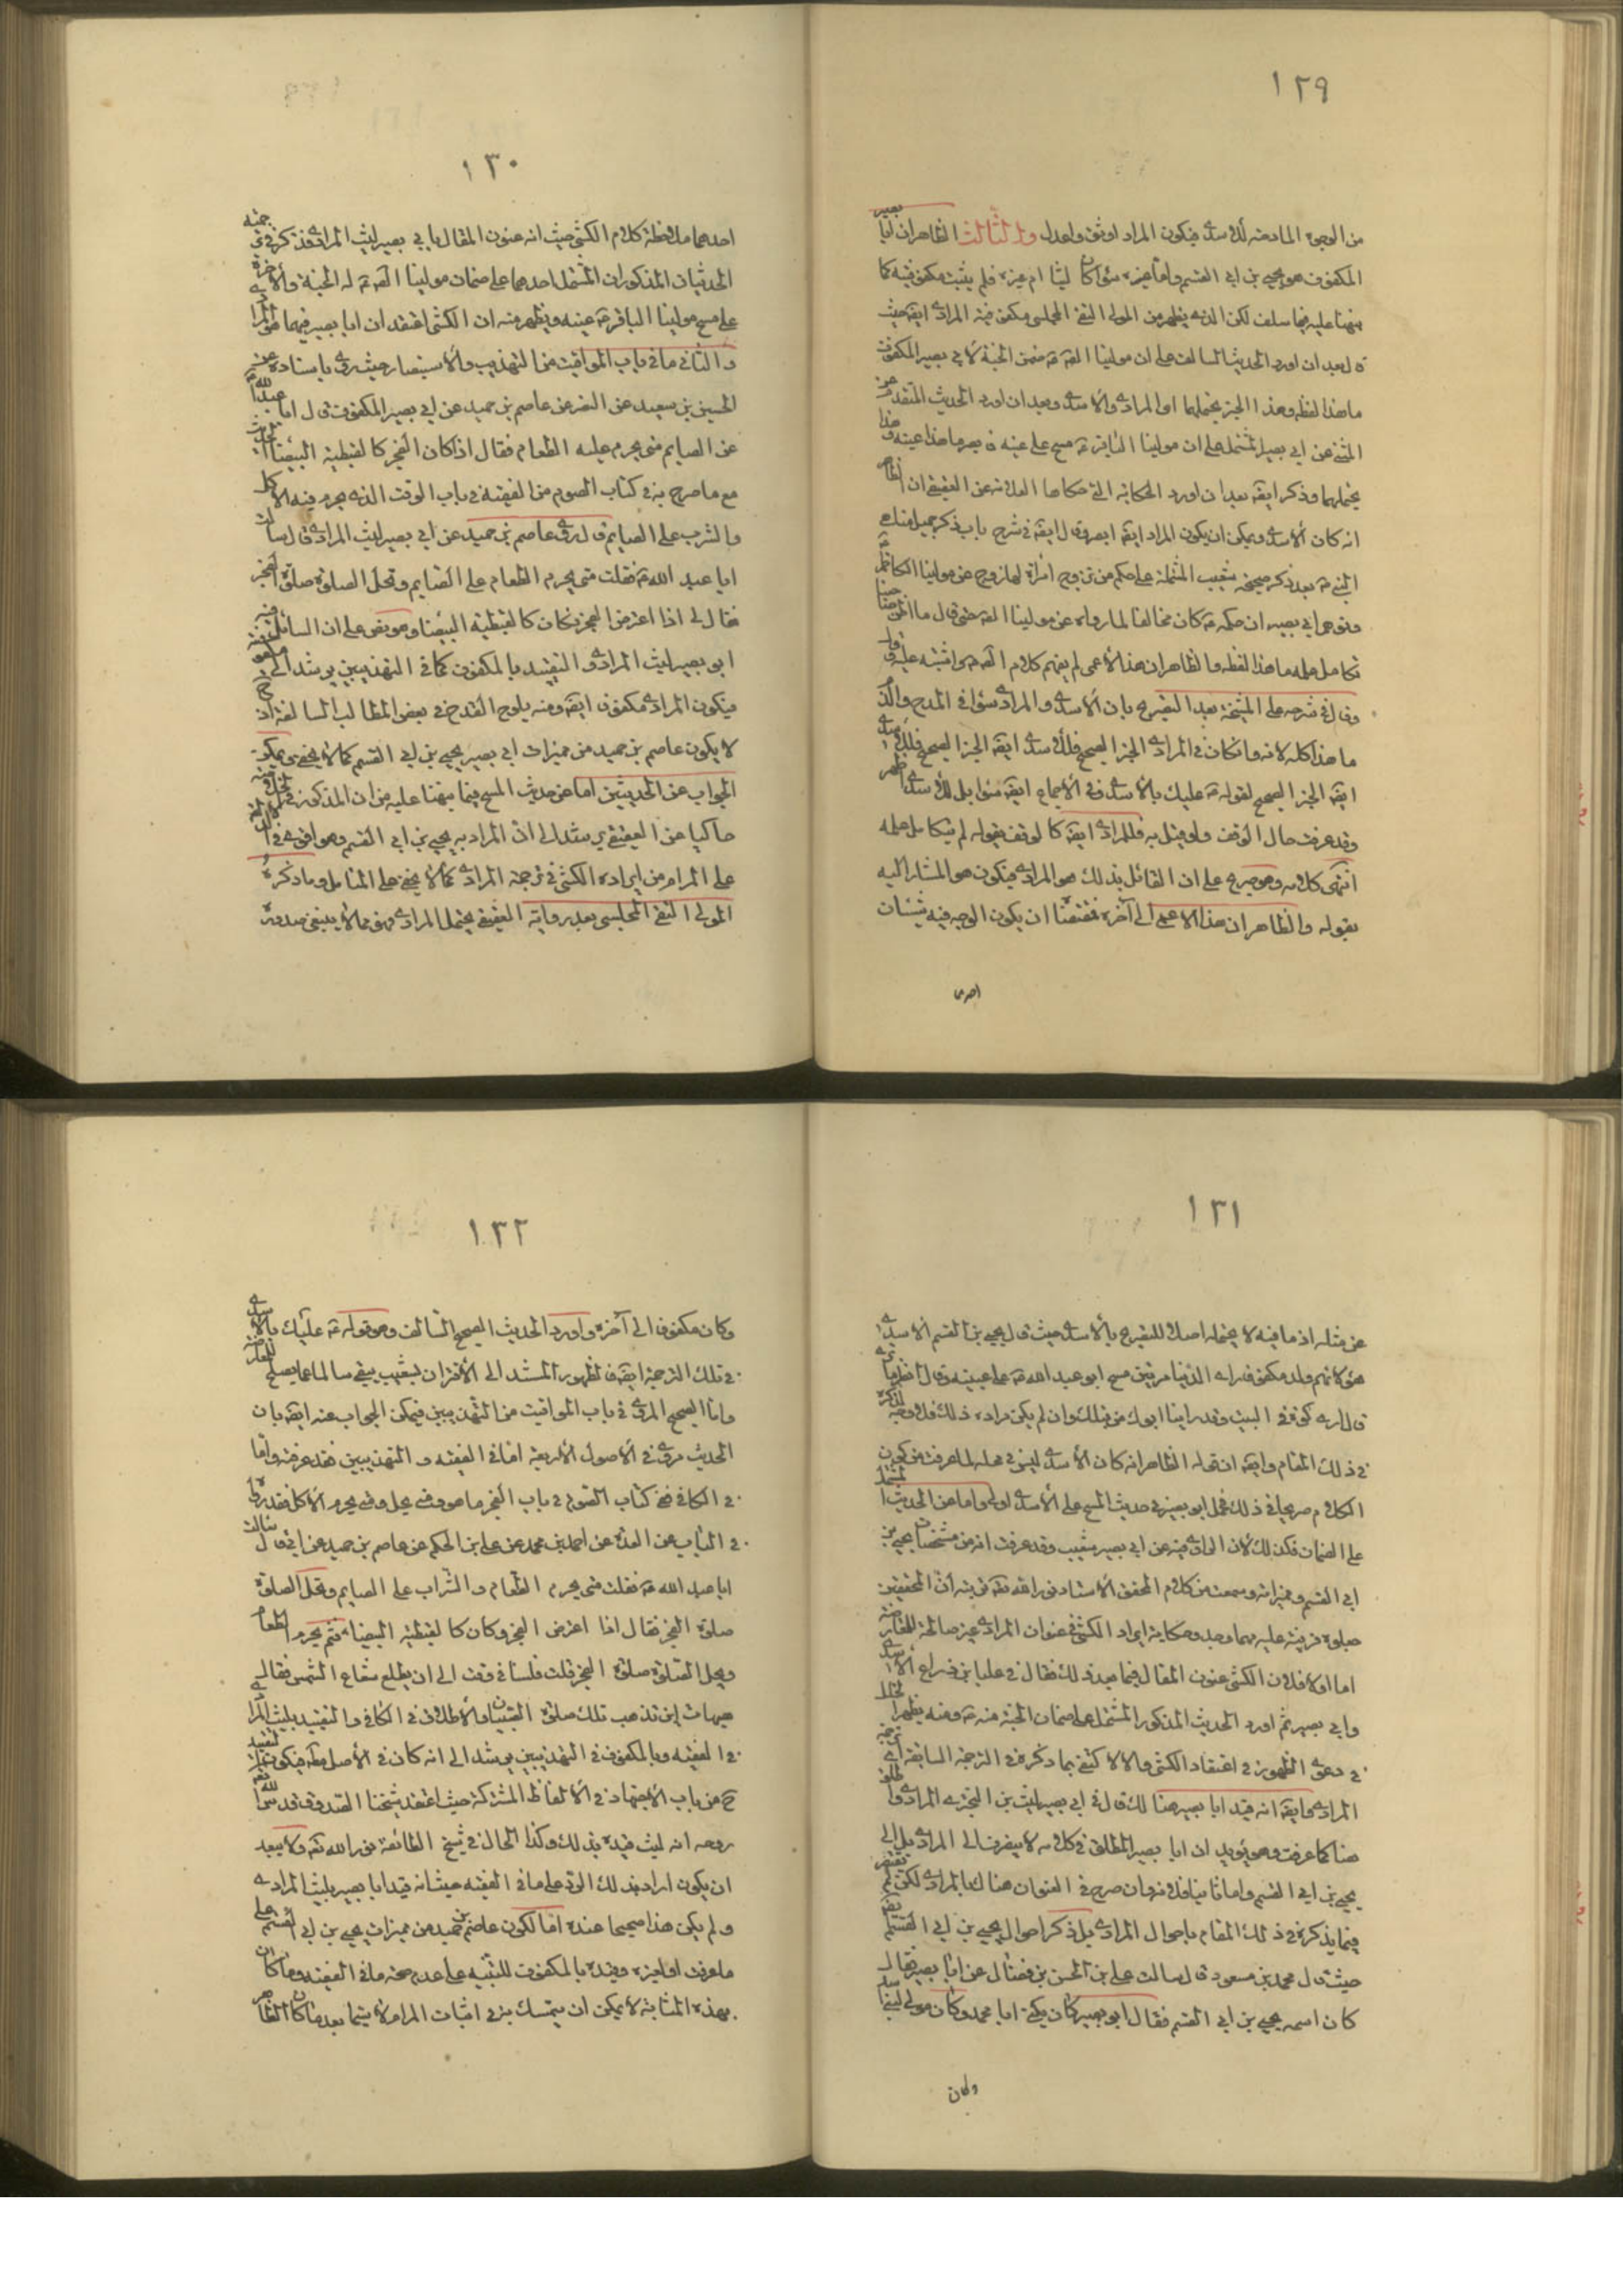 ١٢٩
من الوجوه المادحة للأسدي فيكون المراد اوثق واعدل والثالث الظاهر ان ابا بصير
المكفوف هو يحيى بن ابي القسم واما غيره سواء كان ليثا ام غيره فلم يثبت مكفوفيته كما
نبهنا عليه فيما سلف لكن الذي يظهر من المولى التقي المجلسي مكفوفية المرادي ايضا حيث
قال بعد ان اورد الحديث السالف على ان مولينا الصادق ع ضمن الجنة لابي بصير المكفوف
ما هذا لفظه وهذا الخبر يحتملهما اي المرادي والاسدي وبعد ان اورد الحديث المتقدم عن
المثنى عن ابي بصير المشتمل على ان مولينا الباقر ع مسح على عينه فابصر ما هذا عينه وهذا
يحتملهما وذكر ايضا بعد ان اورد الحكاية التي حكاها العلامة عن العقيقي ان الظاهر
انه كان الاسدي ويمكن ان يكون المراد ايضا ابصر وقال ايضا في شرح باب ذكر جمل من
بعد ذكر صحيحة شعيب المشتملة على حكم من تزوج امرأة لها زوج عن مولينا الكاظم ع
ودعوى ابي بصير ان حكمه ع كان مخالفا لما رواه عن مولينا الصادق حتى قال ما اظن صاحبنا
تكامل علمه ما هذا لفظه والظاهر ان هذا الاعمى لم يفهم كلام الصادق
وقال في شرحه على المشيخة بعد التصريح بان الاسدي والمرادي سواء في المدح والذم
ما هذا كلامه لانه وان كان في المرادي الخبر الصحيح فللاسدي ايضا الخبر الصحيح
ايضا الخبر الصحيح لقوله ع عليك بالاسدي وفي الاجماع ايضا سواء بل للاسدي اظهر
وقد عرفت حال الوقف ولو قيل به فللمرادي ايضا كالوقف بقوله لم يتكامل علمه
انتهى كلامه وهو صريح على ان القائل بذلك هو المرادي فيكون هو المشار اليه
بقوله والظاهر ان هذا الاعمى الى آخره فمقتضا ان يكون الوجه فيه شيئان
احدهما
١٣٠
احدهما ملاحظة كلام الكشي حيث انه عنون المقال بابي بصير ليث المرادي فذكر في ترجمته
الحديثان المذكوران المشتمل احدهما على ضمان مولينا الصادق ع له الجنة والآخر
على مسح مولينا الباقر ع عينه ويظهر منه ان الكشي اعتقد ان ابا بصير فيهما هو المرادي
والثاني ما في باب المواقيت من التهذيب والاستبصار حيث روى باسناده عن
الحسين بن سعيد عن النضر عن عاصم بن حميد عن ابي بصير المكفوف قال سالت ابا عبد الله ع
عن الصايم متى يحرم عليه الطعام فقال اذا كان الفجر كالقبطية البيضاء
مع ما صرح به في كتاب الصوم من الفقيه في باب الوقت الذي يحرم فيه الاكل
والشرب على الصايم قال روى عاصم بن حميد عن ابي بصير ليث المرادي قال سالت
ابا عبد الله ع فقلت متى يحرم الطعام على الصايم وتحل الصلوة صلوة الفجر
فقال لي اذا اعترض الفجر فكان كالقبطية البيضاء وهو نص على ان السائل فيه
ابو بصير ليث المرادي والتقييد بالمكفوف كما في التهذيبين يرشد الى
فيكون المرادي مكفوف ايضا ومنه يلوح القدح في بعض المطالب السالفة اذ ح
لا يكون عاصم بن حميد من مميزات ابي بصير يحيى بن ابي القسم كما لا يخفى ويمكن
الجواب عن الحديثين اما عن حديث المسح فبما نبهنا عليه من ان المذكور في
حاكيا عن العقيقي يرشد الى ان المراد به يحيى بن ابي القسم وهو اقوى في
على المرام من ايراده الكشي في ترجمة المرادي كما لا يخفى على المتامل وما ذكره
المولى التقي المجلسي بعد رواية العقيقي يحتمل المرادي فهو مما لا ينبغي صدوره
١٣١
عن مثله اذ ما فيه لا يحتمله اصلا للتصريح بالاسدي حيث قال يحيى بن القسم الاسدي
مولاهم ولد مكفوف راى الدنيا مرتين مسح ابو عبد الله ع على عينيه وقال انظر ما ترى
قال ارى كوة في البيت وقد رايناها ابوك من قبلك وان لم يكن مراده ذلك فلا وجه لذكره
في ذلك المقام وايضا ان قوله الظاهر انه كان الاسدي ليس في محله لما عرفت من كون
الكلام صريحا في ذلك فحمل ابو بصير في حديث المسح على الاسدي اولى واما عن الحديث المشتمل
على الضمان فكذلك لان الراوي فيه عن ابي بصير شعيب وقد عرفت انه من مشخصات يحيى بن
ابي القسم ومميزاته وسمعت من كلام المحقق الاستاد نور الله تعالى تربته ان المحققين
جعلوه قرينة عليه مهما وجد وحكاية ايراد الكشي في عنوان المرادي غير صالحة للمعارضة
اما اولا فلان الكشي عنون المقال فيما بعد ذلك فقال في علباء بن ذراع الاسدي
وابي بصير ثم اورد الحديث المذكور المشتمل على ضمان الجنة منه ع ومنه يظهر الخلل
في دعوى الظهور في اعتقاد الكشي والا لاكتفى بما ذكره في الترجمة السابقة اي ترجمة
المرادي وايضا انه قيد ابا بصير هنالك قال في ابي بصير ليث بن البختري المرادي واطلق
هنا كما عرفت وهو يؤيد ان ابا بصير المطلق في كلامه لا ينصرف الى المرادي بل الى
يحيى بن ابي القسم واما ثانيا فلانه وان صرح في العنوان هنالك بالمرادي لكن لم يقتصر
فيما يذكره في ذلك المقام باحوال المرادي بل ذكر احوال يحيى بن ابي القسم ايضا
حيث قال محمد بن مسعود قال سالت علي بن الحسن بن فضال عن ابي بصير فقال
كان اسمه يحيى بن ابي القسم فقال ابو بصير كان يكنى ابا محمد وكان مولى لبني اسد
وكان
١٣٢
وكان مكفوفا الى آخره واورد الحديث الصحيح السالف وهو قوله ع عليك بالاسدي
في تلك الترجمة ايضا فالظهور المستند الى الاقتران بشعيب يبقى سالما عما يصلح للمعارضة
واما الصحيح المروي في باب المواقيت من التهذيبين فيمكن الجواب عنه ايضا بان
الحديث مروي في الاصول الاربعة اما في الفقيه والتهذيبين فقد عرفته واما
في الكافي ففي كتاب الصوم في باب الفجر ما هو ومتى يحل ومتى يحرم الاكل فقد رواه
في الباب عن العدة عن احمد بن محمد عن علي بن الحكم عن عاصم بن حميد عن ابي بصير قال سالت
ابا عبد الله ع فقلت متى يحرم الطعام والشراب على الصايم وتحل الصلوة
صلوة الفجر فقال اذا اعترض الفجر وكان كالقبطية البيضاء فثم يحرم الطعام
ويحل الصلوة صلوة الفجر قلت فلسنا في وقت الى ان يطلع شعاع الشمس فقال لي
هيهات اين تذهب تلك صلوة الصبيان والاطلاق في الكافي والتقييد بليث المرادي
في الفقيه وبالمكفوف في التهذيبين يرشد الى انه كان في الاصل مطلقا فيكون التقييد
ح من باب الاجتهاد في الالفاظ المشتركة حيث اعتقد شيخنا الصدوق قدس الله
روحه انه ليث قيده بذلك وكذا الحال في شيخ الطائفة نور الله تعالى ولا يبعد
ان يكون اراد بذلك الرد على ما في الفقيه حيث انه قيد ابا بصير بليث المرادي
ولم يكن هذا صحيحا عنده اما لكون عاصم بن حميد من مميزات يحيى بن ابي القسم على
ما عرفت او لغيره وقيده بالمكفوف للتنبيه على عدم صحة ما في الفقيه وما كان
بهذه المثابة لا يمكن ان يتمسك به في اثبات المرام لا سيما بعد ما كان الظاهر